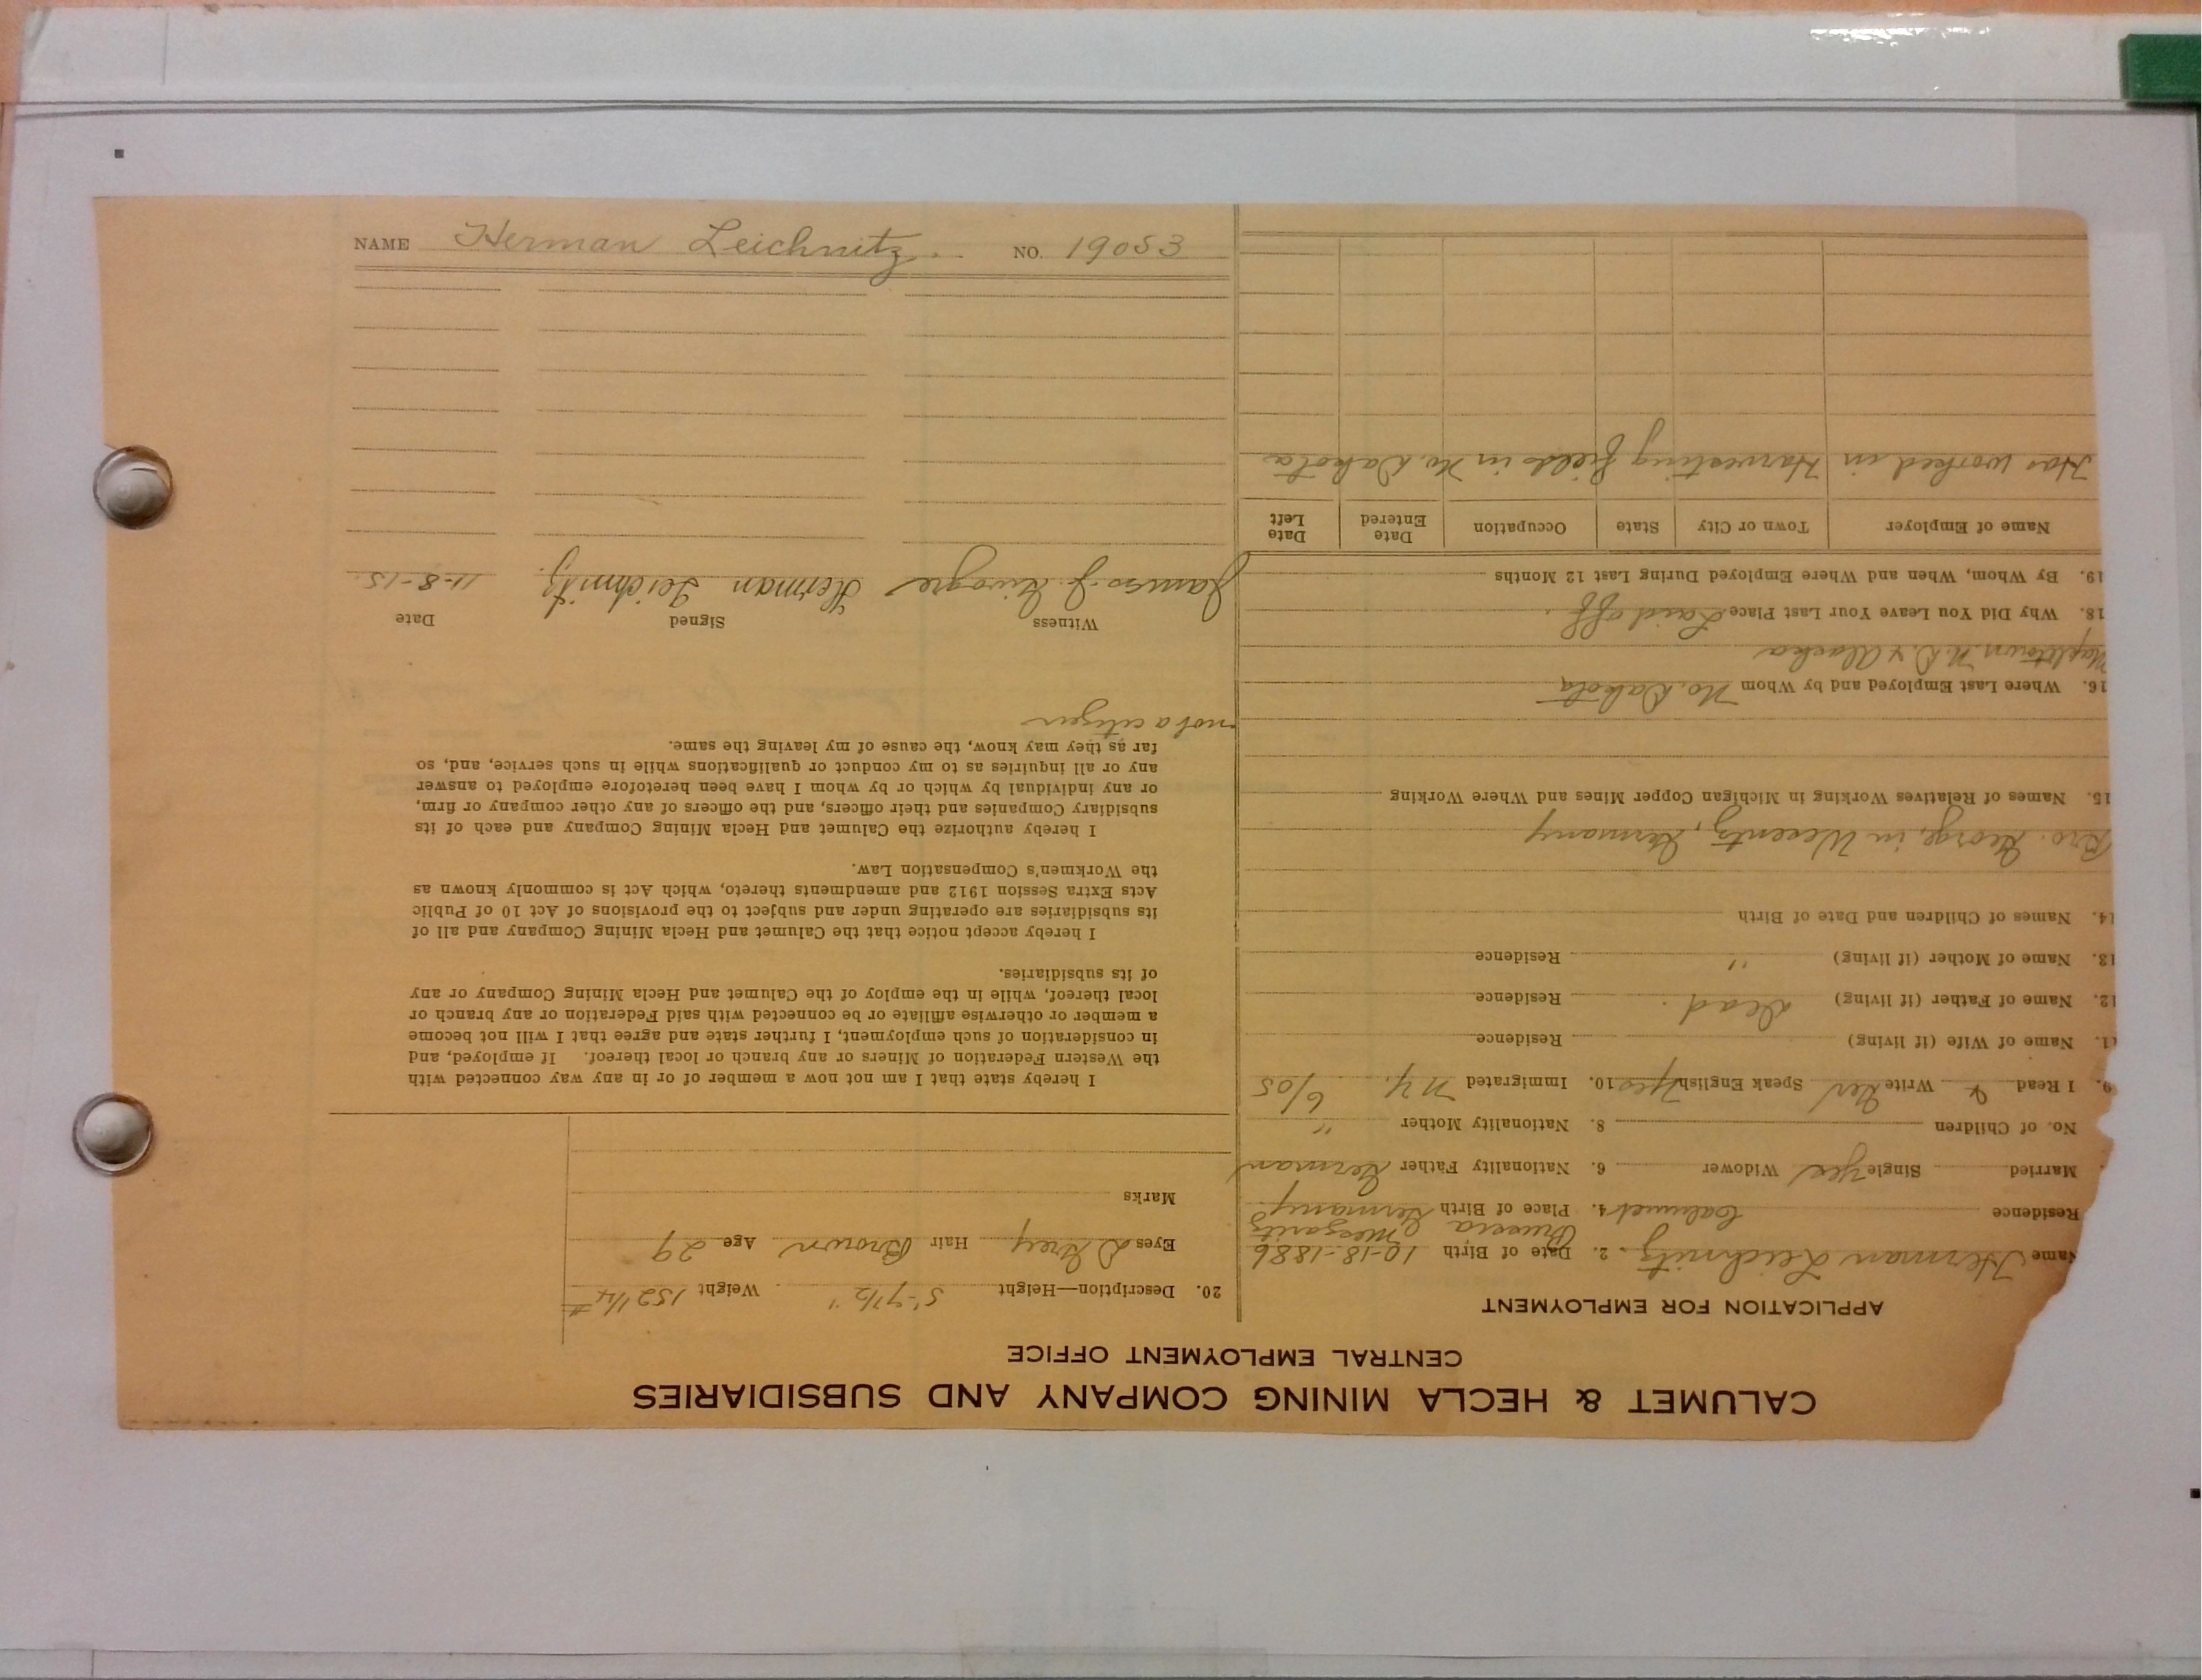 CALUMET & HECLA MINING COMPANY AND SUBSIDIARIES
CENTRAL EMPLOYMENT OFFICE
APPLICATION FOR EMPLOYMENT
Name Herman Leichnitz. 2. Date of Birth 10-18-1886
Prussia
Residence Calumet 4. Place of Birth Germany
Married Single Yes Widower 6. Nationality Father German
No. of Children 8. Nationality Mother "
9. I Read & Write Ger Speak English Yes 10. Immigrated N.Y. 6/05
11. Name of Wife (if living) Residence
12. Name of Father (if living) Dead. Residence
13. Name of Mother (if living) " Residence
14. Names of Children and Date of Birth
Bro. George, in Germany
15. Names of Relatives Working in Michigan Copper Mines and Where Working
16. Where Last Employed and by Whom No. Dakota
N.D. &
18. Why Did You Leave Your Last Place Laid off.
19. By Whom, When and Where Employed During Last 12 Months
Name of Employer Town or City State Occupation Date Entered Date Left
Has worked in Harvesting fields in No. Dakota
20. Description—Height 5'-7 1/2" Weight 152 1/4 #
Eyes D Grey Hair Brown Age 29
Marks
I hereby state that I am not now a member of or in any way connected with
the Western Federation of Miners or any branch or local thereof. If employed, and
in consideration of such employment, I further state and agree that I will not become
a member or otherwise affiliate or be connected with said Federation or any branch or
local thereof, while in the employ of the Calumet and Hecla Mining Company or any
of its subsidiaries.
I hereby accept notice that the Calumet and Hecla Mining Company and all of
its subsidiaries are operating under and subject to the provisions of Act 10 of Public
Acts Extra Session 1912 and amendments thereto, which Act is commonly known as
the Workmen's Compensation Law.
I hereby authorize the Calumet and Hecla Mining Company and each of its
subsidiary Companies and their officers, and the officers of any other company or firm,
or any individual by which or by whom I have been heretofore employed to answer
any or all inquiries as to my conduct or qualifications while in such service, and, so
far as they may know, the cause of my leaving the same.
not a citizen
Witness Signed Date
James J. Herman Leichnitz. 11-8-15.
NAME Herman Leichnitz. NO. 19053